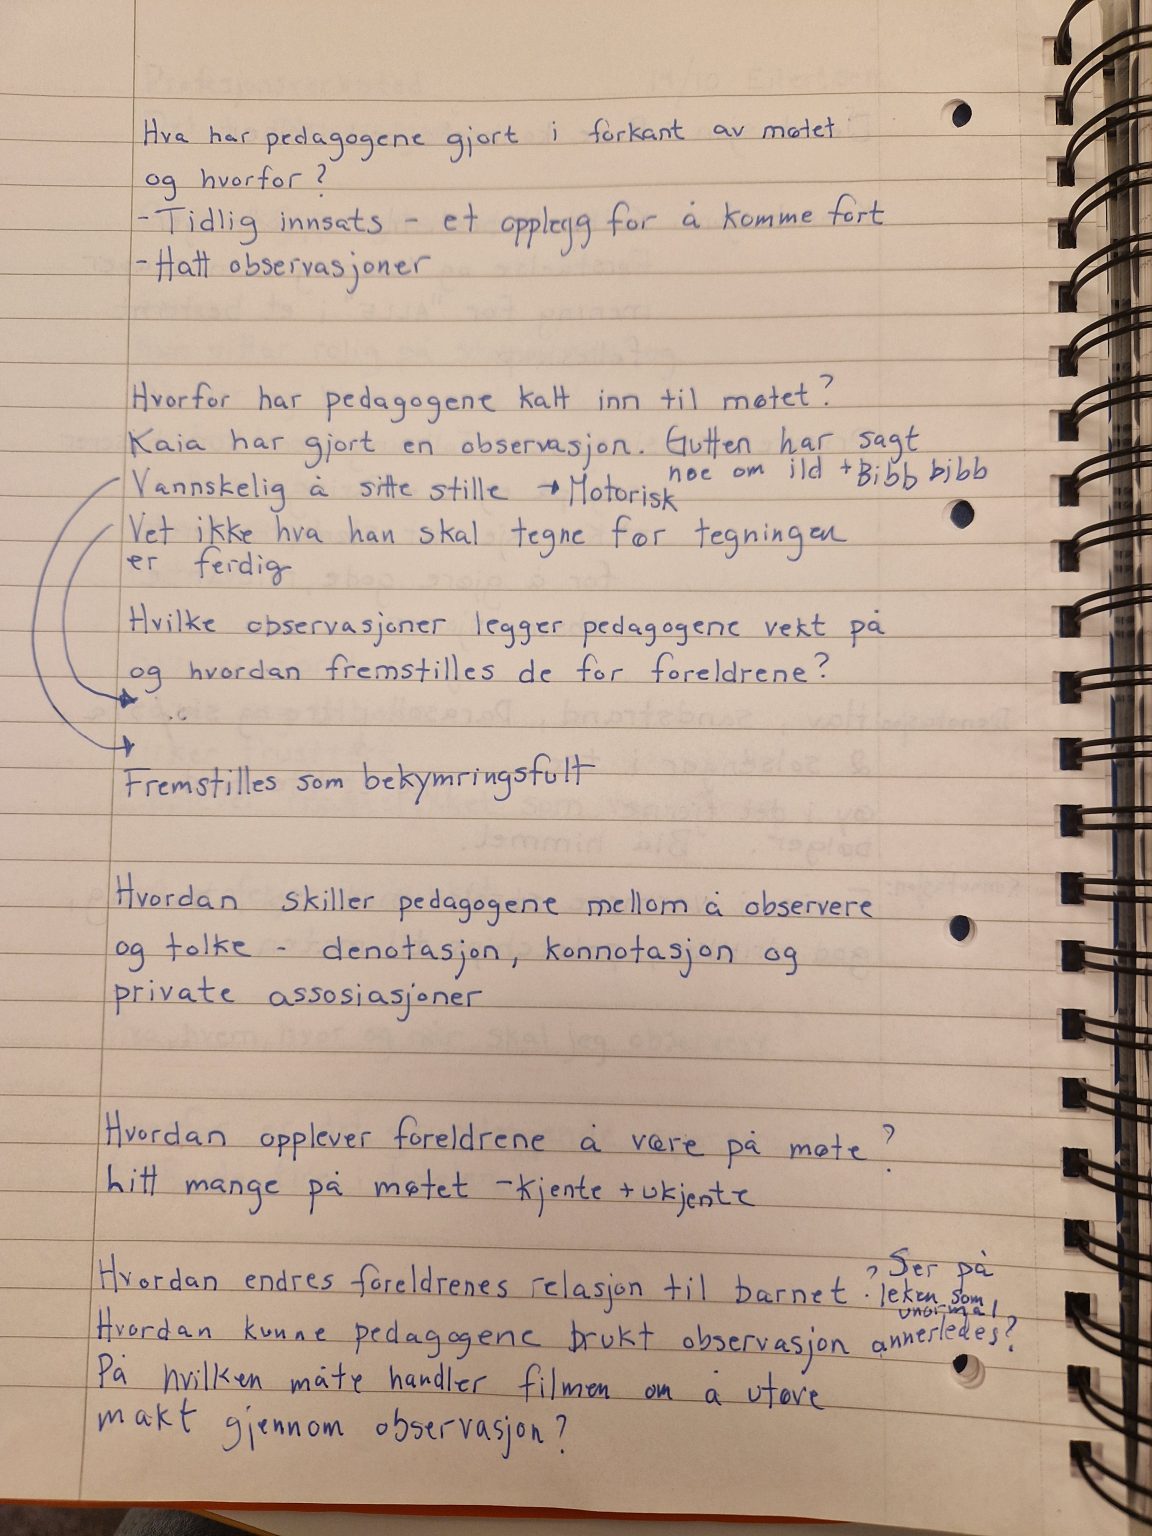 Hva har pedagogene gjort i forkant av møtet
og hvorfor?
- Tidlig innsats - et opplegg for å komme fort
- Hatt observasjoner
Hvorfor har pedagogene kalt inn til møtet?
Kaia har gjort en observasjon. Gutten har sagt
noe om ild + Bibb bibb
Vannskelig å sitte stille → Motorisk
Vet ikke hva han skal tegne før tegningen
er ferdig
Hvilke observasjoner legger pedagogene vekt på
og hvordan fremstilles de for foreldrene?
Fremstilles som bekymringsfult
Hvordan skiller pedagogene mellom å observere
og tolke - denotasjon, konnotasjon og
private assosiasjoner
Hvordan opplever foreldrene å være på møte?
litt mange på møtet - kjente + ukjente
Hvordan endres foreldrenes relasjon til barnet? Ser på
leken som
unormal
Hvordan kunne pedagogene brukt observasjon annerledes?
På hvilken måte handler filmen om å utøve
makt gjennom observasjon?